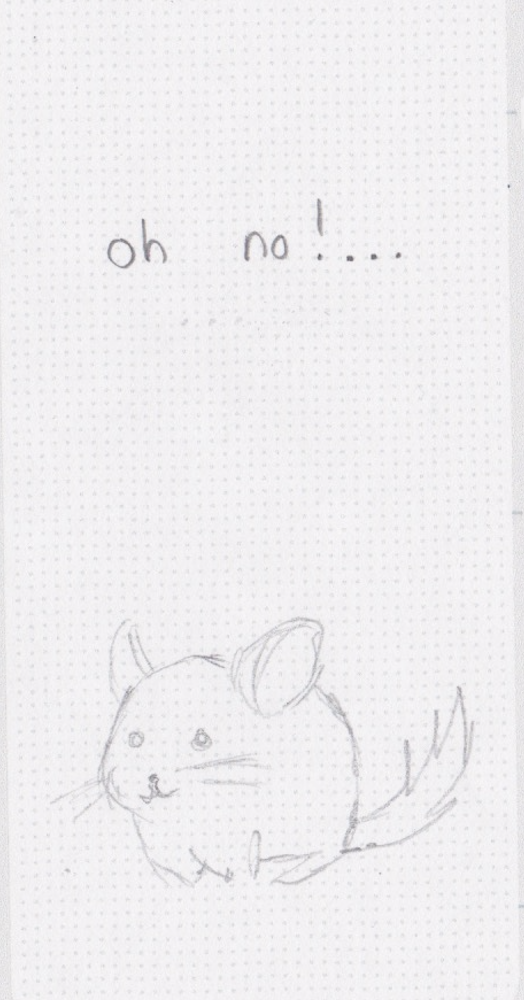 oh no!....